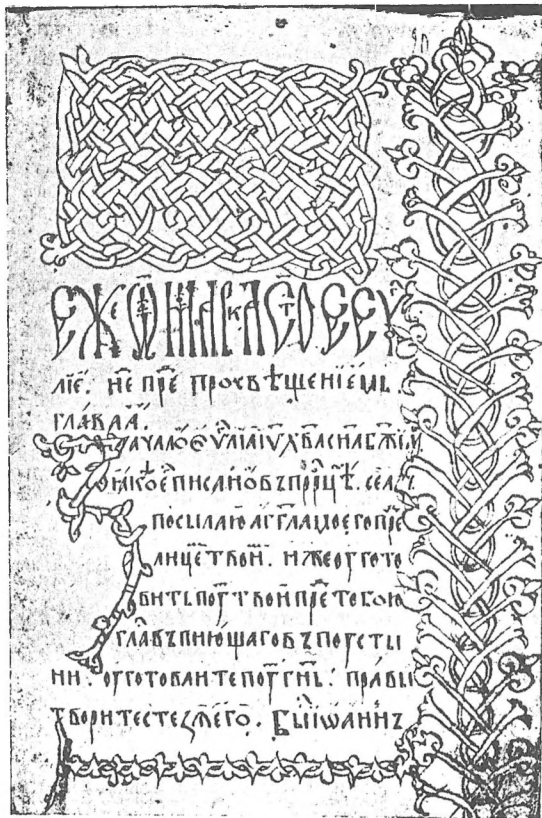 ЕЖЕ Ѿ МАРКА СТОЕ ЕѴ҃А
ЛїЕ. НЕ ПРЕ ПРОСВѢЩЕНїЕМЬ.
ГЛАВА А҃.
ЗАЧАЛО ЕѴ҃ЛїА ІУ҃ ХВ҃А СН҃А БЖ҃їА
ꙖКОЕ ПИСАНО ВЪ ПРРЦѢ. СЕ АЗЪ
ПОСЫЛАЮ АГГЛА МОЕГО ПРЕ
ЛИЦЕ ТВОИ. ИЖЕ ОУГОТО
ВИТЬ ПОУ ТВОИ ПРЕ ТОБОЮ
ГЛА ВЪПИЮЩАГО ВЪ ПОУСТЫ
НИ. ОУГОТОВАИТЕ ПОУ ГНЬ. ПРАВЫ
ТВОРИТЕ СТЕЗѦ ЕГО. БЫ ІѠАННЪ